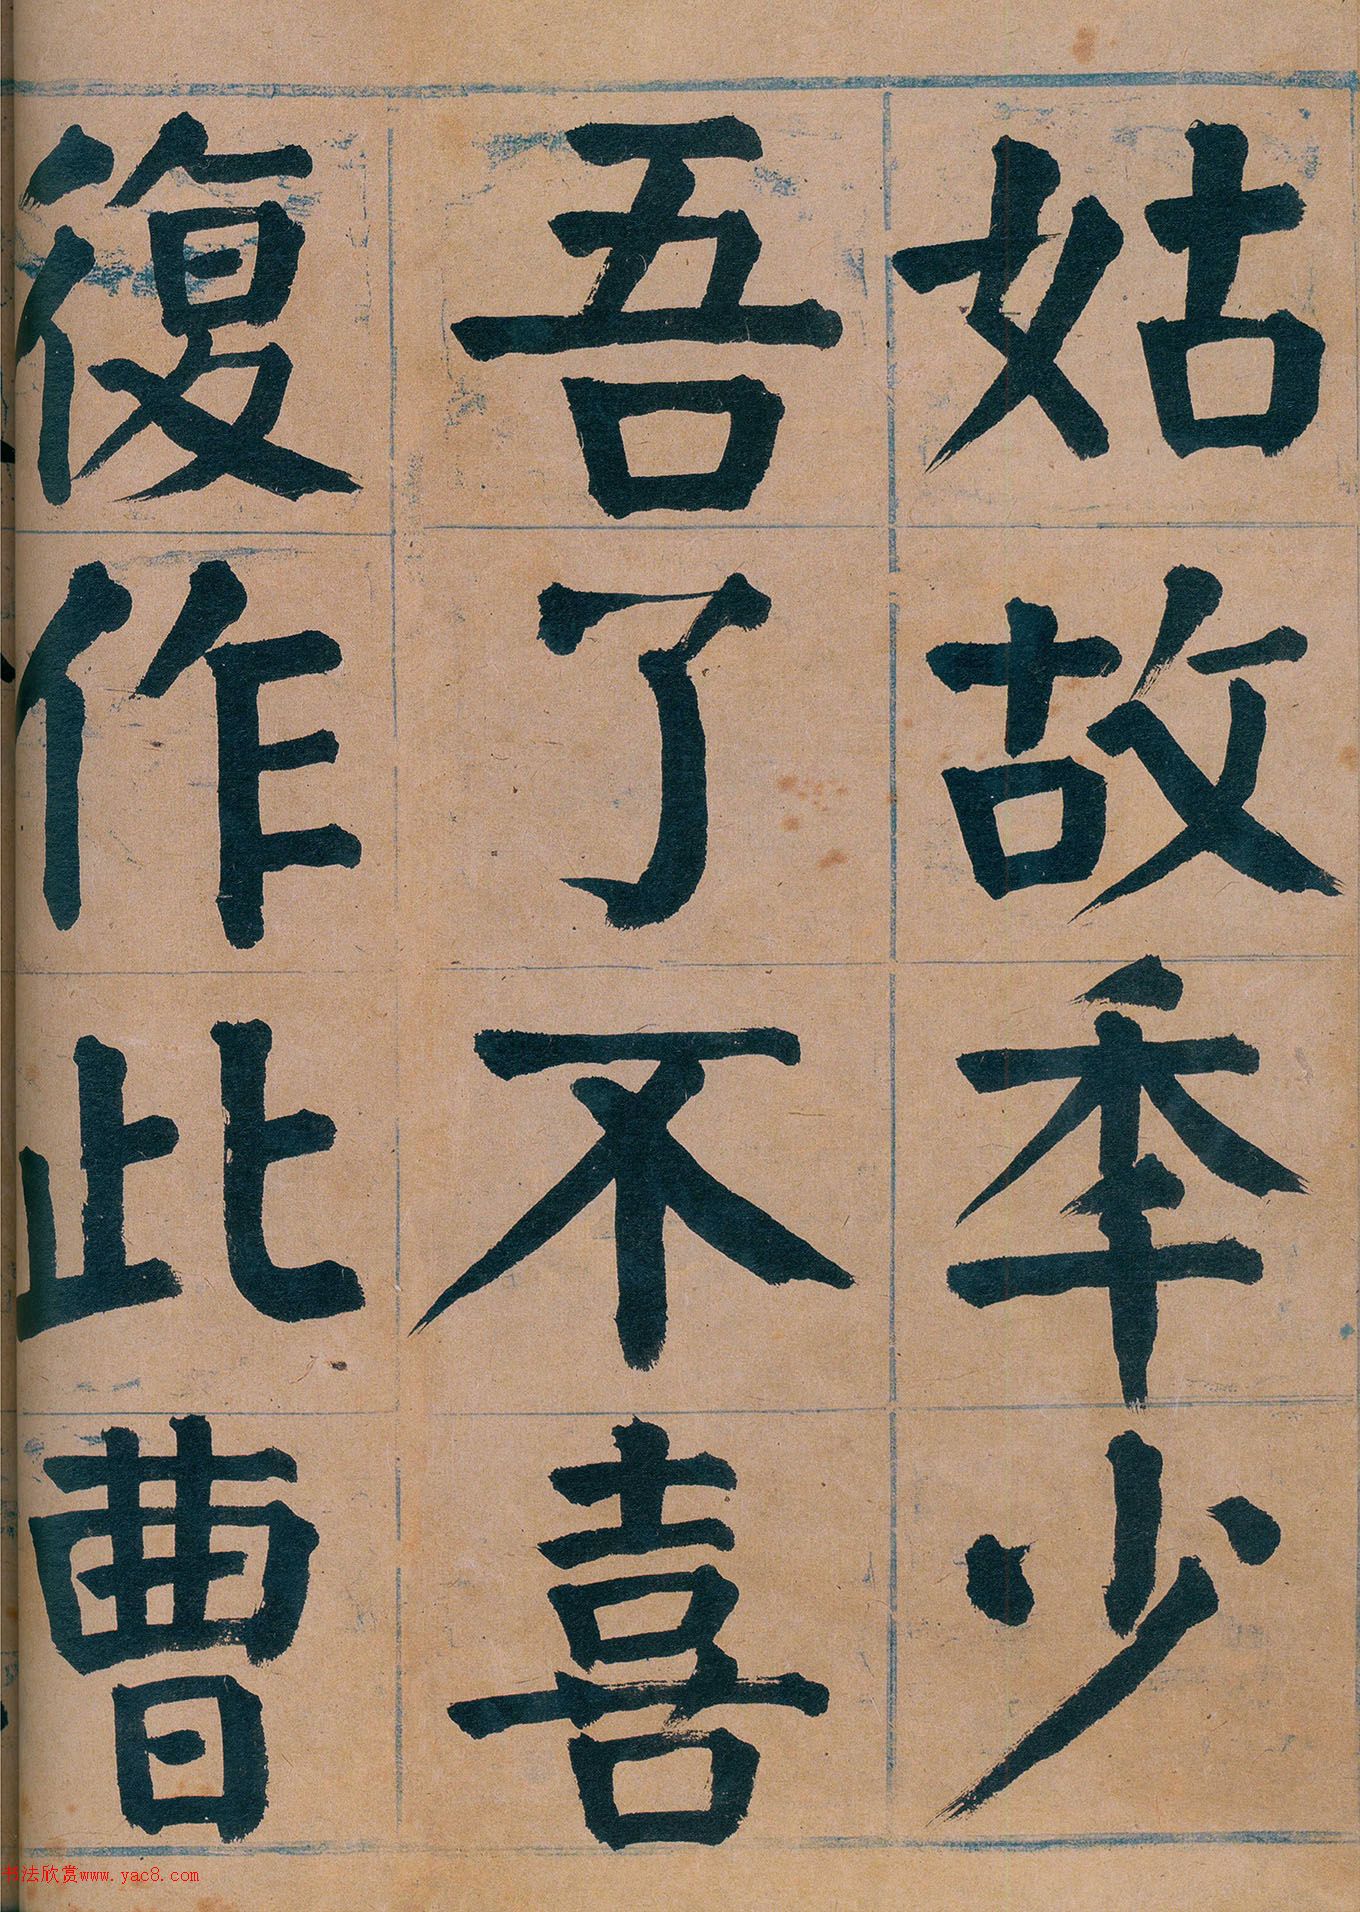 姑故季少
吾了不喜
復作此曹
书法欣赏www.yac8.com